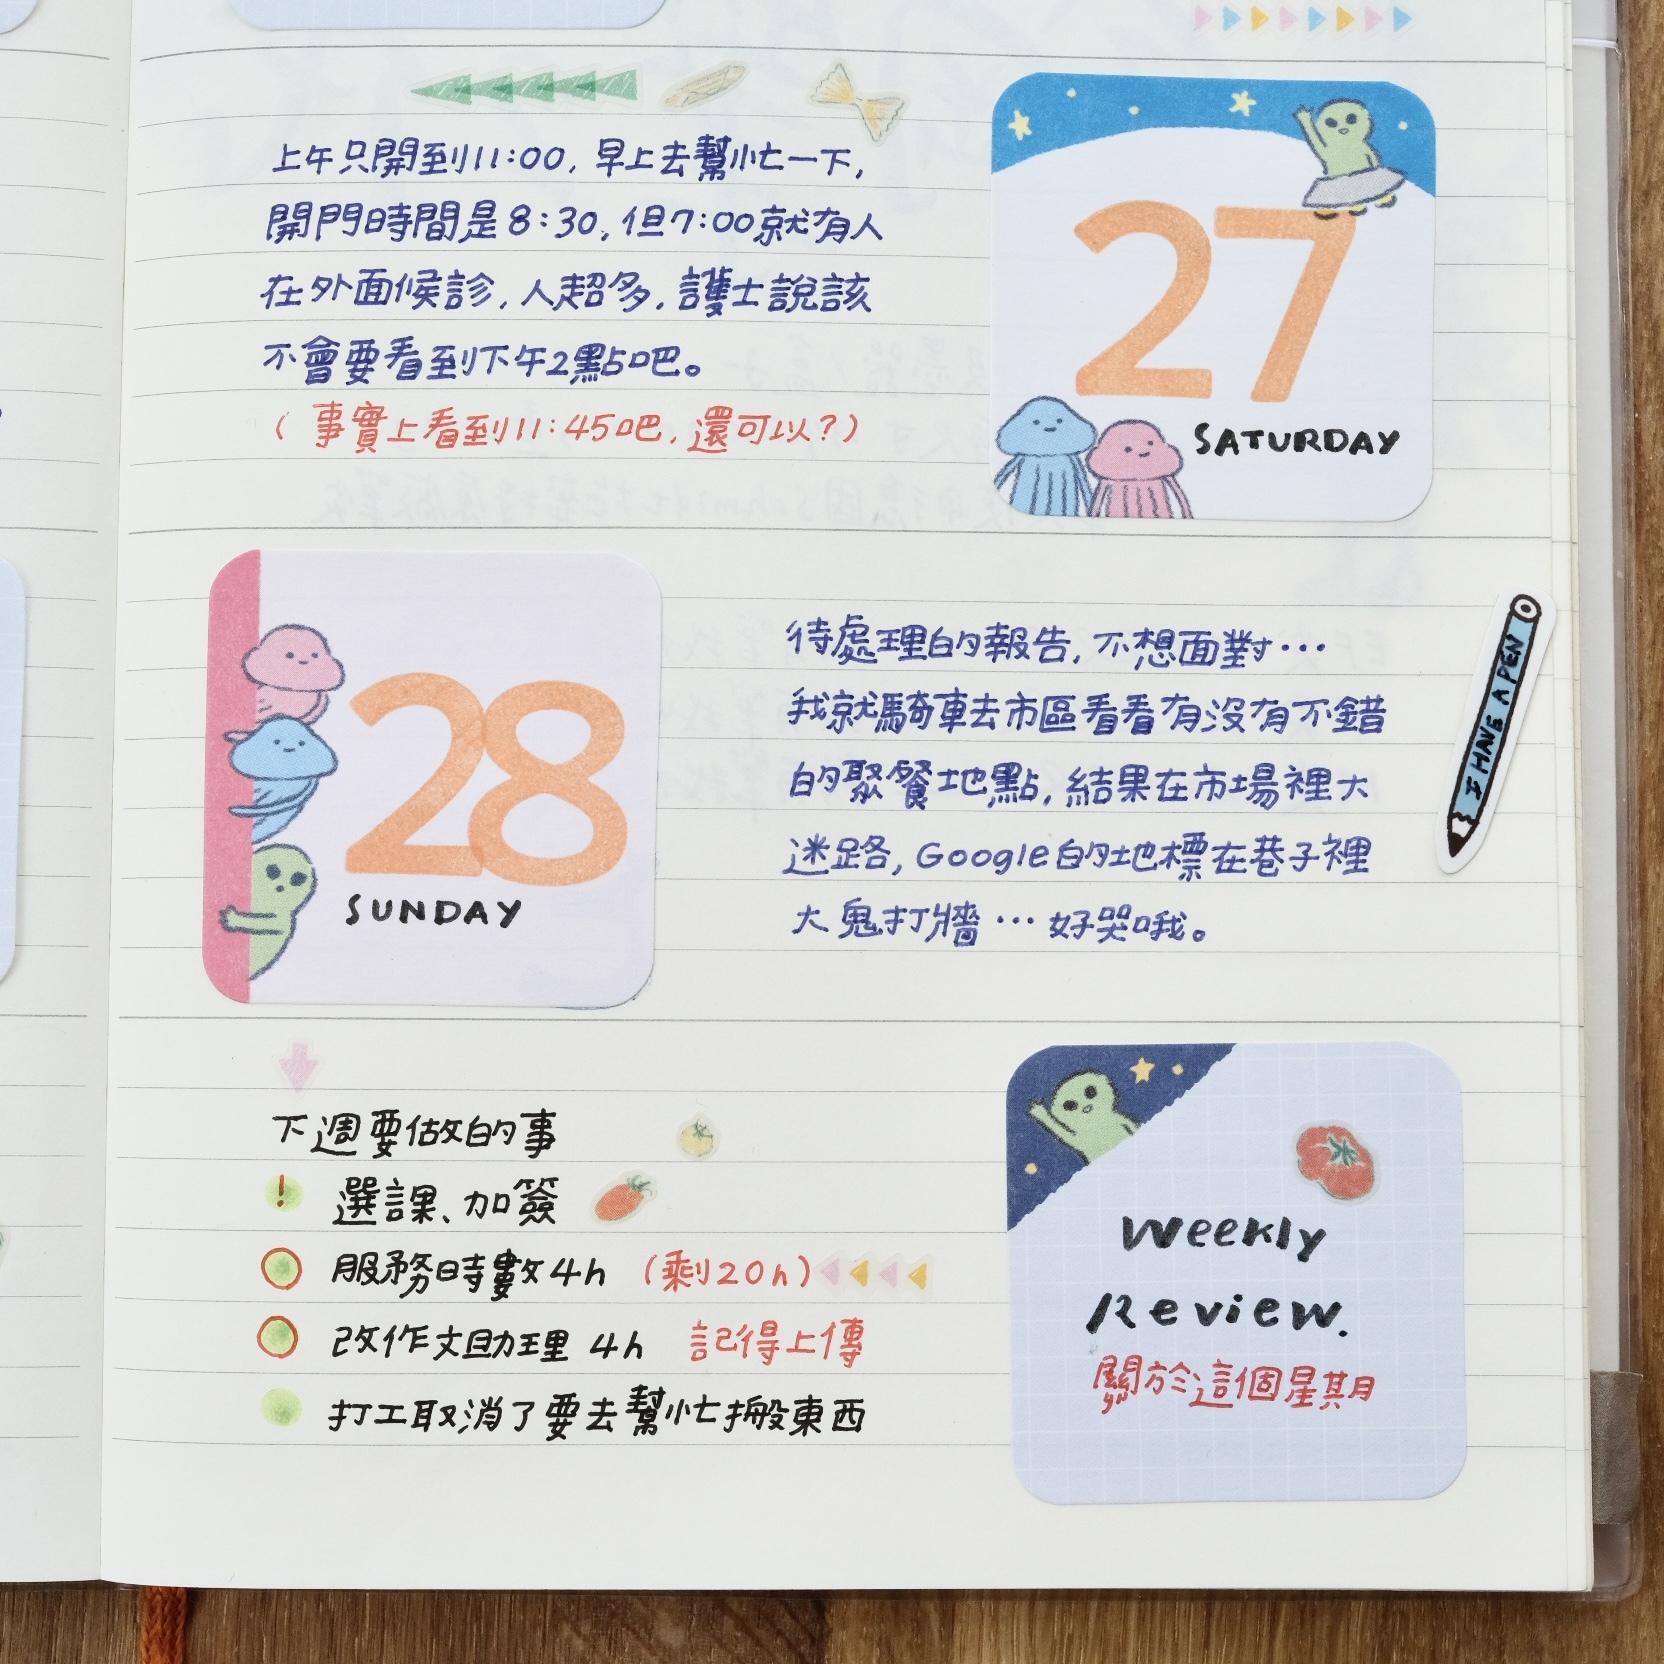 上午只開到11:00, 早上去幫忙一下,
開門時間是8:30, 但7:00就有人
在外面候診, 人超多, 護士說該
不會要看到下午2點吧。
(事實上看到11:45吧, 還可以?)
27
SATURDAY
28
SUNDAY
待處理的報告, 不想面對…
我就騎車去市區看看有沒有不錯
的聚餐地點, 結果在市場裡大
迷路, Google的地標在巷子裡
大鬼打牆…好哭哦。
I HAVE A PEN
下週要做的事
! 選課、加簽
服務時數4h (剩20h)
改作文助理 4h 記得上傳
打工取消了要去幫忙搬東西
Weekly
Review.
關於這個星期